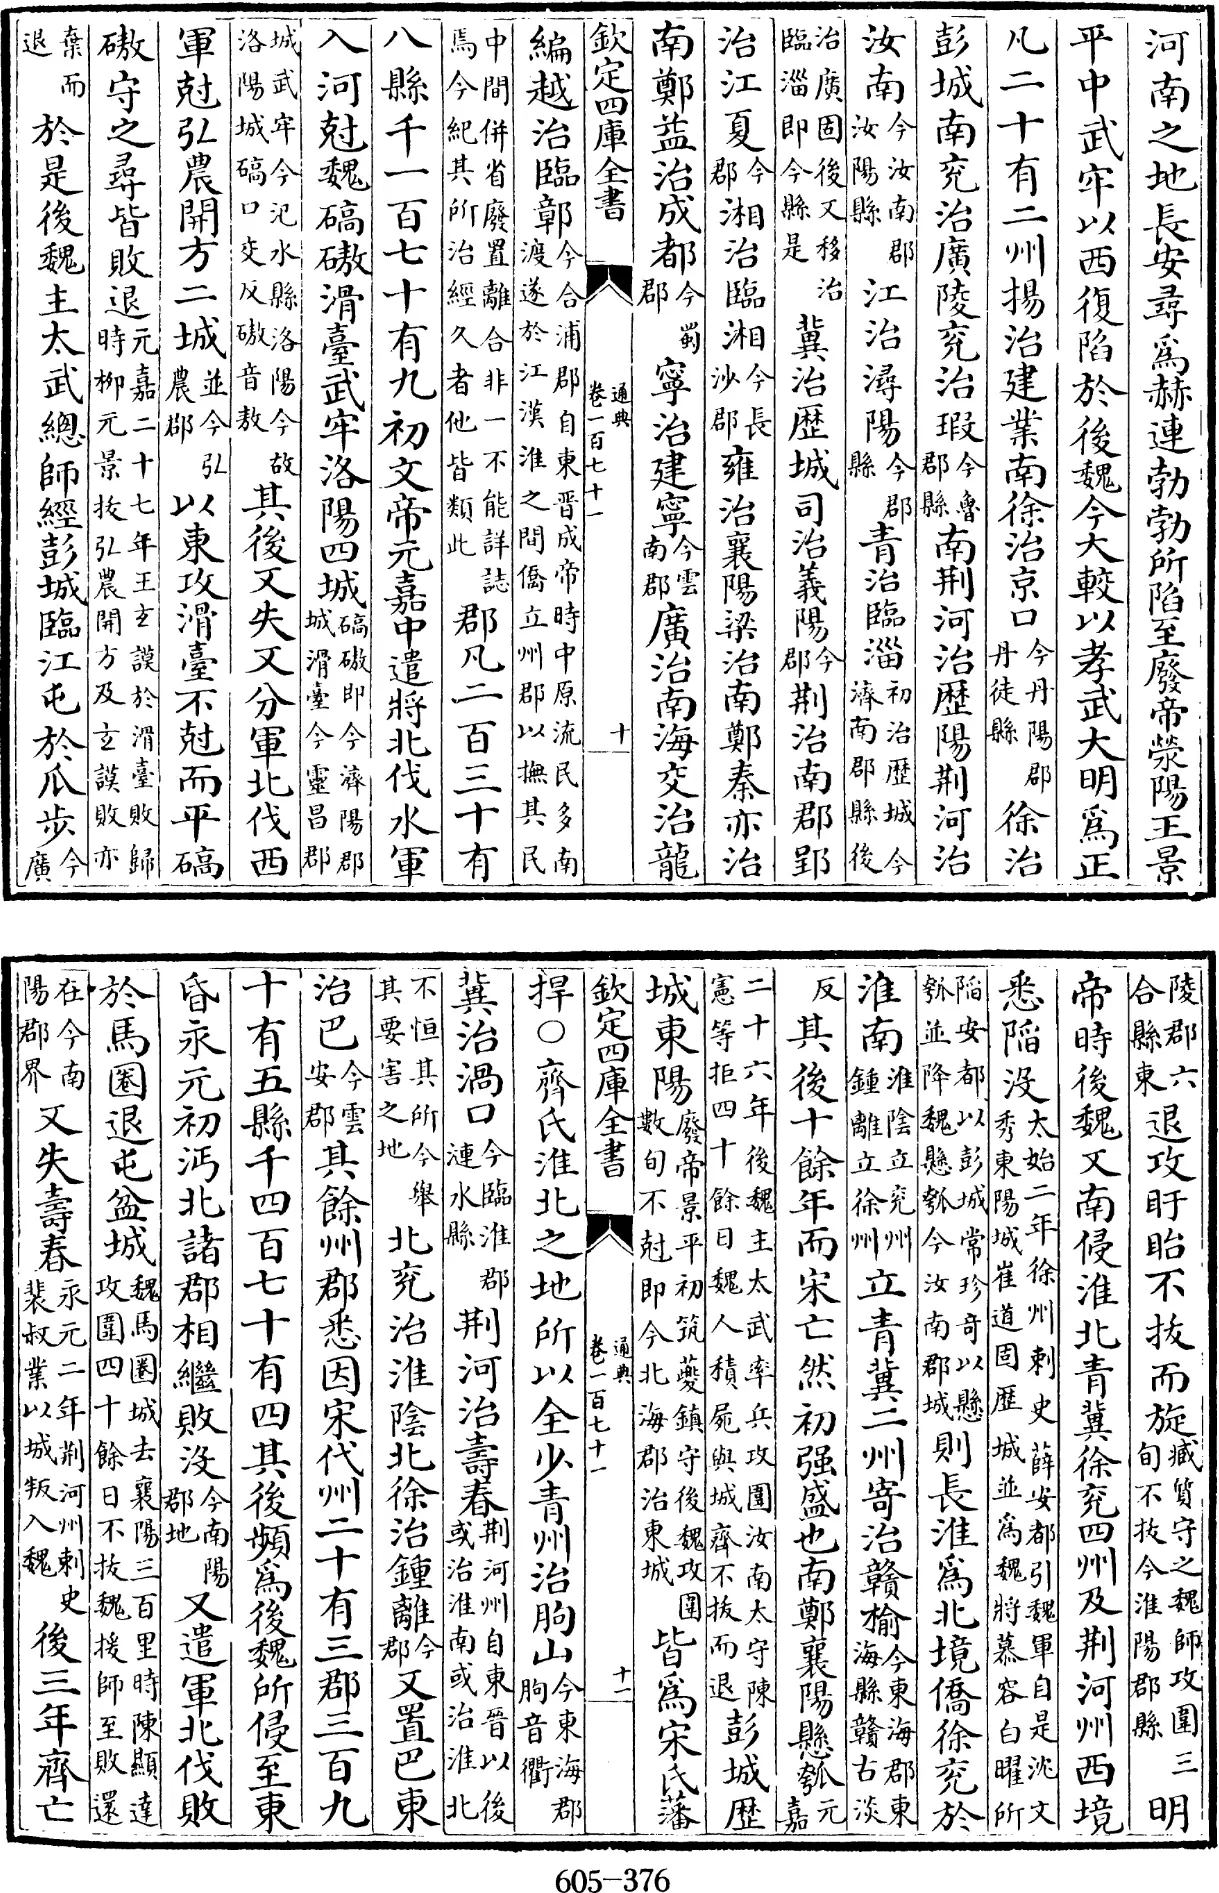 河南之地長安尋為赫連勃勃所陷至廢帝滎陽王景
平中武牢以西復陷於後魏今大較以孝武大明為正
凡二十有二州揚治建業南徐治京口今丹陽郡丹徒縣徐治
彭城南兖治廣陵兖治瑕今魯郡縣南荆河治歴陽荆河治
汝南今汝南郡汝陽縣江治潯陽今郡縣青治臨淄初治歴城今濟南郡縣後
治廣固後又移治臨淄即今縣是冀治歴城司治義陽今郡荆治南郡郢
治江夏今郡湘治臨湘今長沙郡雍治襄陽梁治南鄭秦亦治
南鄭益治成都今蜀郡寧治建寧今雲南郡廣治南海交治龍
欽定四庫全書 通典卷一百七十一 十
編越治臨鄣今合浦郡自東晋成帝時中原流民多南渡遂於江漢淮之間僑立州郡以撫其民
中間併省廢置離合非一不能詳誌焉今紀其所治經久者他皆類此郡凡二百三十有
八縣千一百七十有九初文帝元嘉中遣將北伐水軍
入河尅魏碻磝滑臺武牢洛陽四城碻磝即今濟陽郡城滑臺今靈昌郡
城武牢今汜水縣洛陽今故洛陽城碻口交反磝音敖其後又失又分軍北伐西
軍尅弘農開方二城並今弘農郡以東攻滑臺不尅而平碻
磝守之尋皆敗退元嘉二十七年王玄謨於滑臺敗歸時柳元景抜弘農開方及玄謨敗亦
棄而退於是後魏主太武總師經彭城臨江屯於瓜步今廣
陵郡六合縣東退攻盱眙不拔而旋臧質守之魏師攻圍三旬不抜今淮陽郡縣明
帝時後魏又南侵淮北青冀徐兖四州及荆河州西境
悉陷没太始二年徐州刺史薛安都引魏軍自是沈文秀東陽城崔道固歴城並為魏將慕容白曜所
陷安都以彭城常珍竒以懸瓠並降魏懸瓠今汝南郡城則長淮為北境僑徐兖於
淮南淮陰立兖州鍾離立徐州立青冀二州寄治贛榆今東海郡東海縣贛古淡
反其後十餘年而宋亡然初强盛也南鄭襄陽懸瓠元嘉
二十六年後魏主太武率兵攻圍汝南太守陳憲等拒四十餘日魏人積屍與城齊不抜而退彭城歴
城東陽廢帝景平初筑夔鎮守後魏攻圍數旬不尅即今北海郡治東城皆為宋氏藩
欽定四庫全書 通典卷一百七十一 十一
捍○齊氏淮北之地所以全少青州治朐山今東海郡朐音衢
冀治渦口今臨淮郡漣水縣荆河治壽春荆河州自東晉以後或治淮南或治淮北
不恒其所今舉其要害之地北兖治淮陰北徐治鍾離今郡又置巴東
治巴今雲安郡其餘州郡悉因宋代州二十有三郡三百九
十有五縣千四百七十有四其後頻為後魏所侵至東
昏永元初沔北諸郡相繼敗没今南陽郡地又遣軍北伐敗
於馬圈退屯盆城魏馬圈城去襄陽三百里時陳顯達攻圍四十餘日不抜魏援師至敗還
在今南陽郡界又失壽春永元二年荆河州刺史裴叔業以城叛入魏後三年齊亡
605-376